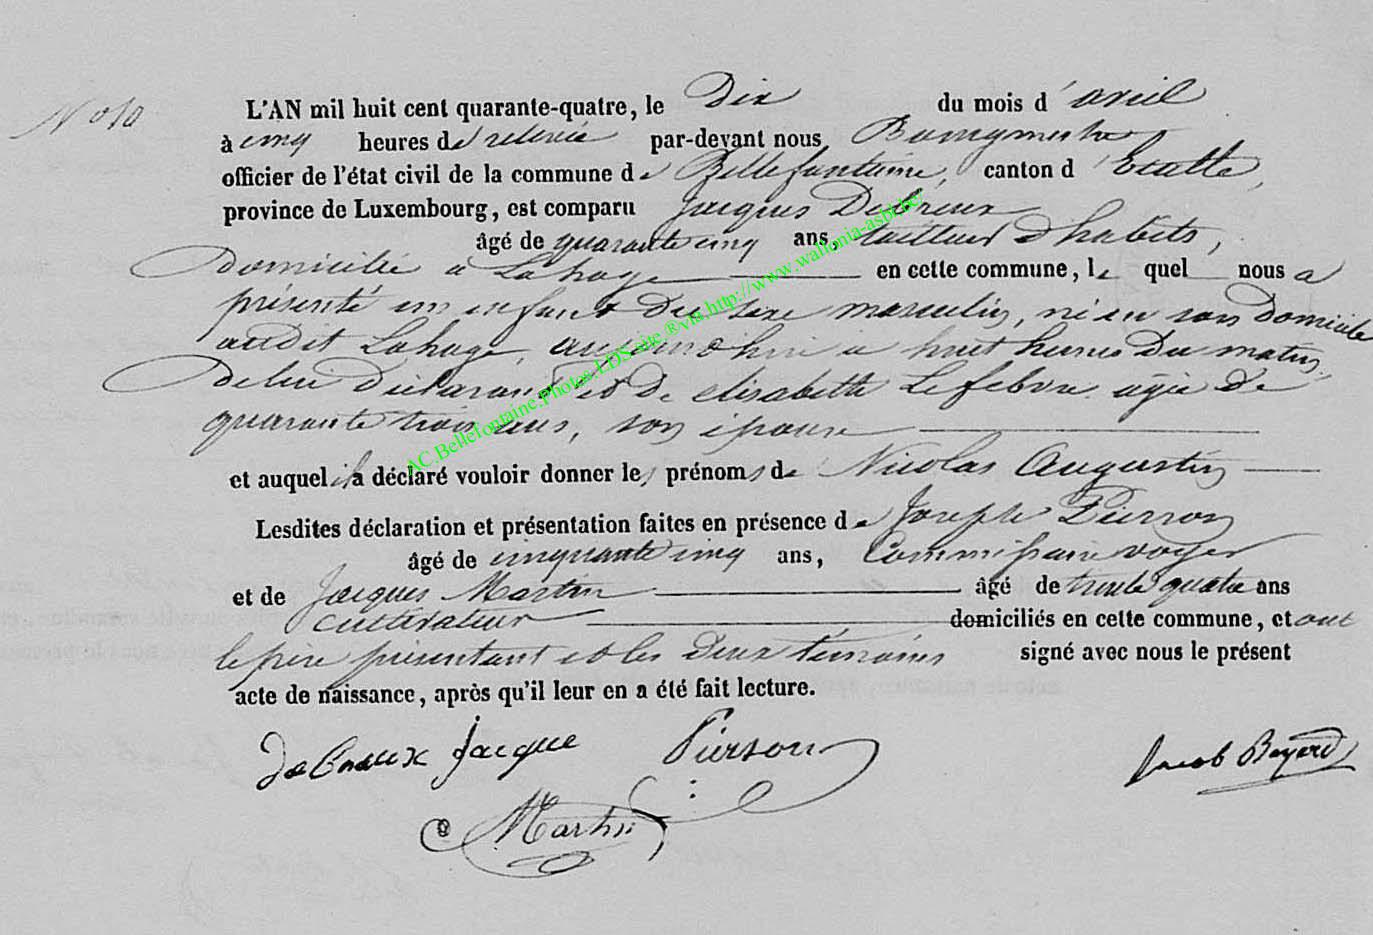 N° 10
L'AN mil huit cent quarante-quatre, le Dix du mois d'avril
à cinq heures de relevée par-devant nous Bourgmestre
officier de l'état civil de la commune de Bellefontaine, canton d'Etalle,
province de Luxembourg, est comparu Jacques Debreux
âgé de quarante cinq ans, tailleur d'habits,
domicilié à Lahage en cette commune, le quel nous a
présenté un enfant du sexe masculin, né en son domicile
audit Lahage, aujourd'hui a huit heures du matin,
de lui déclarant et de elisabeth Lefebvre agée de
quarante trois ans, son épouse
et auquel il a déclaré vouloir donner les prénoms de Nicolas Augustin
Lesdites déclaration et présentation faites en présence de Joseph Pierson
âgé de cinquante cinq ans, Commissaire voyer
et de Jacques Martin âgé de trente quatre ans
cultivateur domiciliés en cette commune, et ont
le père présentant et les deux témoins signé avec nous le présent
acte de naissance, après qu'il leur en a été fait lecture.
Jacque Pierson Jacob
Martin
AC.Bellefontaine.Photos.LDS.site.®via.http://www.wallonia-asbl.be/